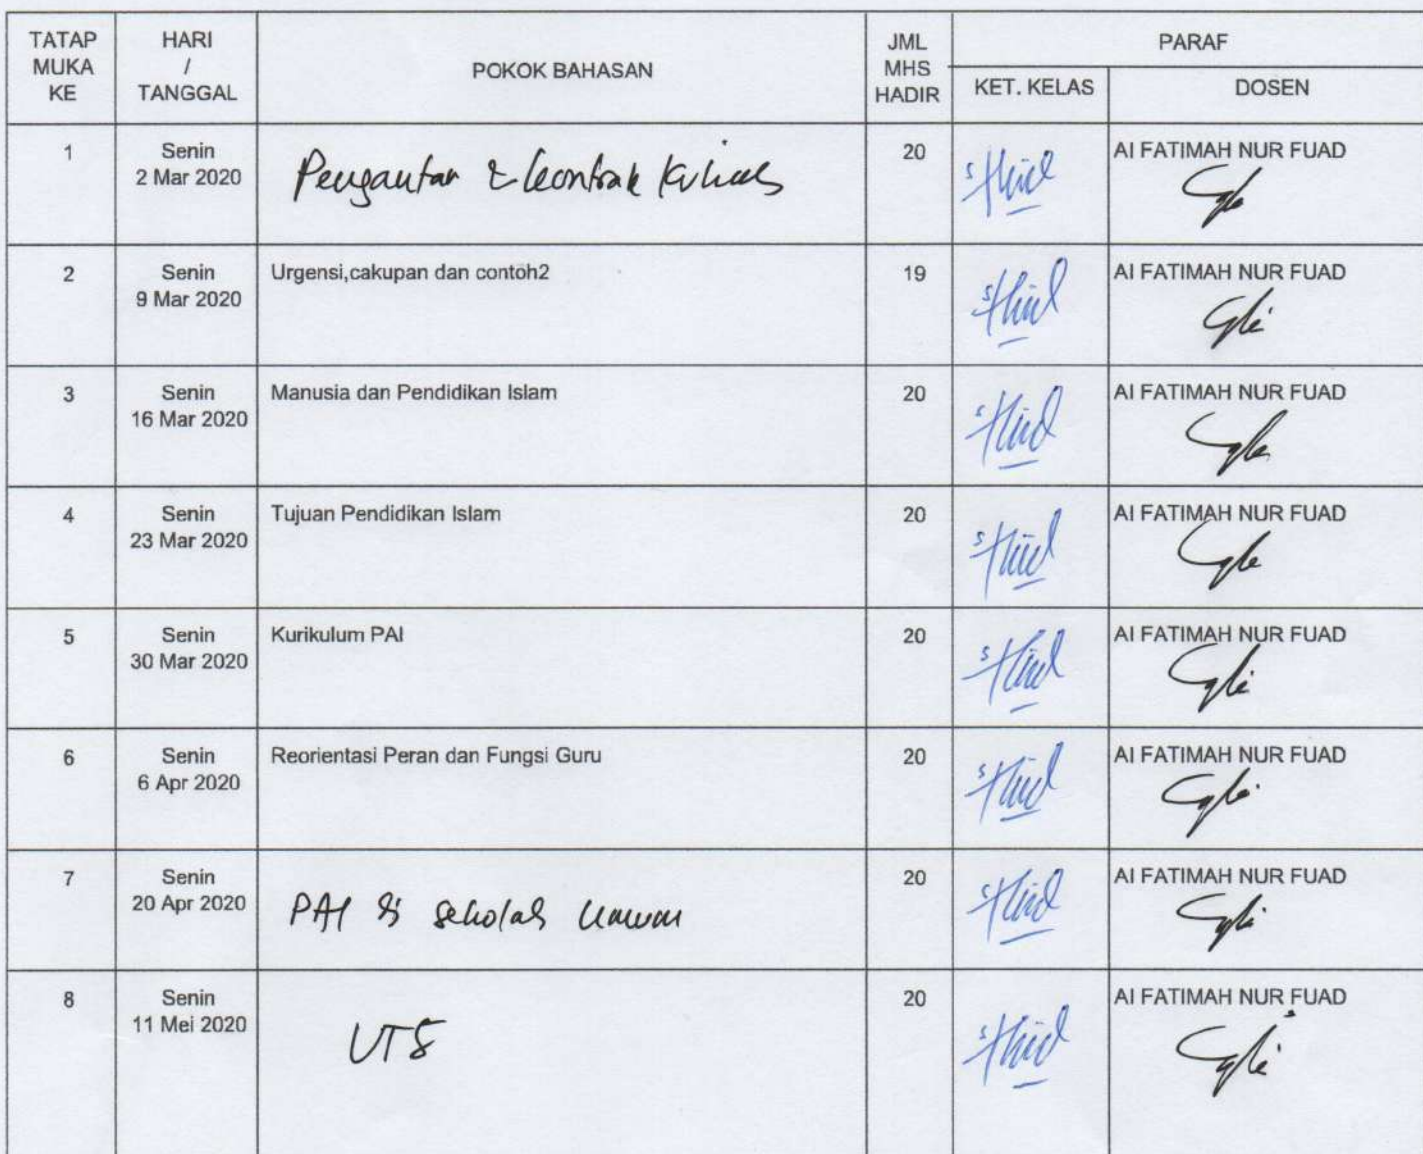 TATAP MUKA KE
HARI / TANGGAL
POKOK BAHASAN
JML MHS HADIR
PARAF
KET. KELAS
DOSEN
1
Senin
2 Mar 2020
Pengantar & kontrak kuliah
20
AI FATIMAH NUR FUAD
2
Senin
9 Mar 2020
Urgensi,cakupan dan contoh2
19
AI FATIMAH NUR FUAD
3
Senin
16 Mar 2020
Manusia dan Pendidikan Islam
20
AI FATIMAH NUR FUAD
4
Senin
23 Mar 2020
Tujuan Pendidikan Islam
20
AI FATIMAH NUR FUAD
5
Senin
30 Mar 2020
Kurikulum PAI
20
AI FATIMAH NUR FUAD
6
Senin
6 Apr 2020
Reorientasi Peran dan Fungsi Guru
20
AI FATIMAH NUR FUAD
7
Senin
20 Apr 2020
PAI di sekolah Umum
20
AI FATIMAH NUR FUAD
8
Senin
11 Mei 2020
UTS
20
AI FATIMAH NUR FUAD